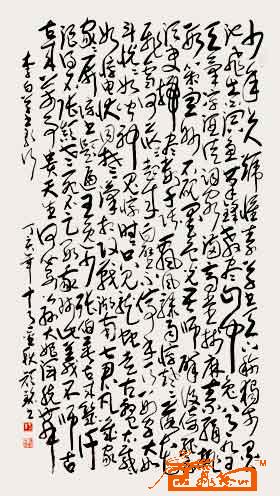 少年上人号怀素草书天下称独步墨
池飞出北溟鱼笔锋杀尽中山兔八月九月
天气凉酒徒词客满高堂笺麻素绢排数
厢宣州石砚墨色光吾师醉后倚绳床
须臾扫尽数千张飘风骤雨惊飒飒落花
飞雪何茫茫起来向壁不停手一行数字大如
斗恍恍如闻神鬼惊时时只见龙蛇走左盘右蹙
如惊电状同楚汉相攻战湖南七郡凡几家
家家屏障书题遍王逸少张伯英古来几许
浪得名张颠老死不足数我师此义不师古
古来万事贵天生何必要公孙大娘浑脱舞
李白草书歌行 丁亥年